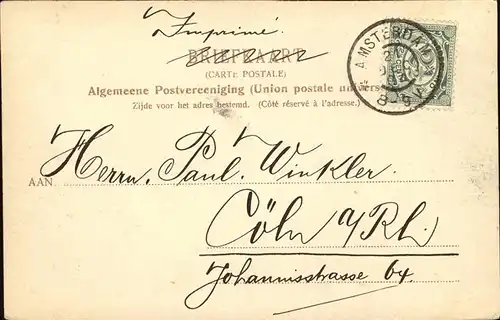 Imprimé.
BRIEFKAART
(CARTE POSTALE)
Algemeene Postvereeniging (Union postale universelle)
Zijde voor het adres bestemd. (Côté réservé à l'adresse.)
AMSTERDAM
21
8-9
AAN
Herrn. Paul. Winkler.
Cöln a/Rh.
Johannisstrasse 64.